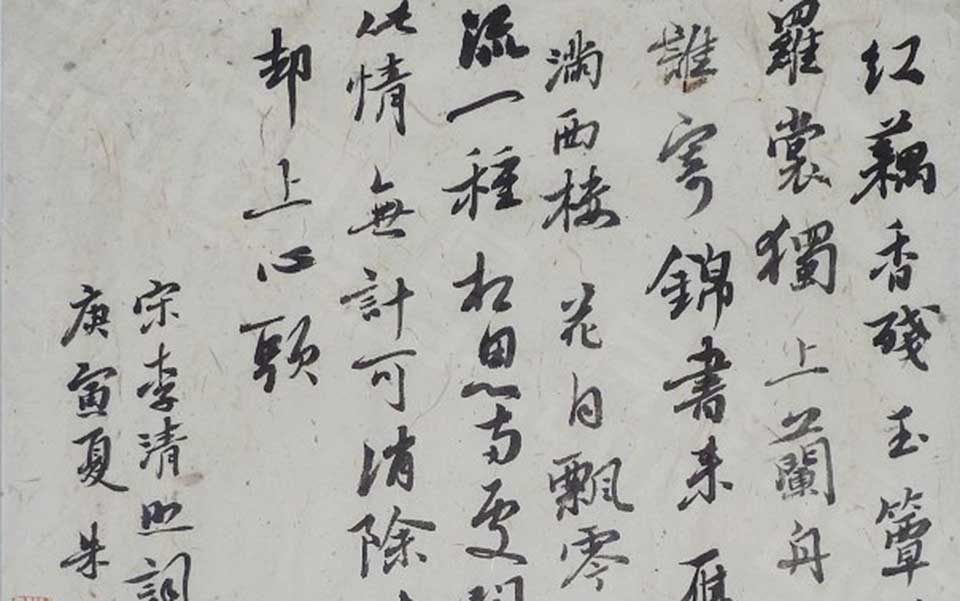 红藕香殘玉簟
羅裳獨上蘭舟
誰寄錦書來雁
滿西樓花自飄零
流一種相思兩處閒
此情無計可消除
却上心頭
宋李清照詞
庚寅夏朱